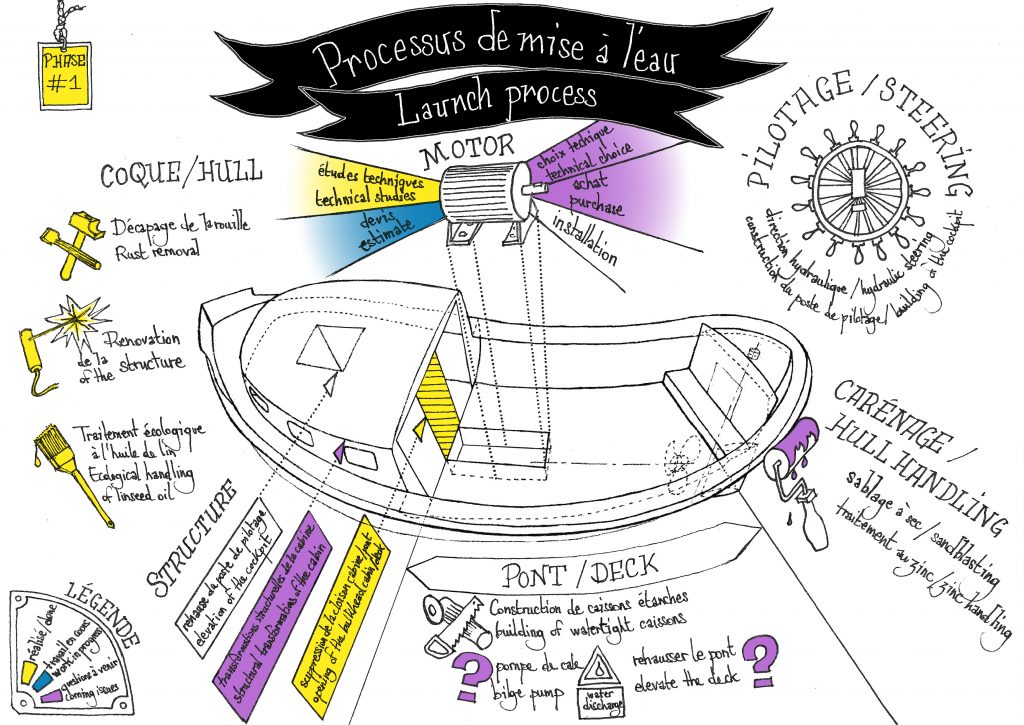 PHASE
#1
Processus de mise à l'eau
Launch process
MOTOR
études techniques
technical studies
devis
estimate
choix techique
technical choice
achat
purchase
installation
PILOTAGE / STEERING
direction hydraulique / hydraulic steering
construction du poste de pilotage / building of the cockpit
COQUE/HULL
Décapage de la rouille
Rust removal
Renovation
de la structure
of the
Traitement écologique
à l'huile de lin
Ecological handling
of linseed oil
STRUCTURE
rehausse du poste de pilotage
elevation of the cockpit
transformations structurelles de la cabine
structural transformations of the cabin
suppression de la cloison cabine/pont
opening of the bulkhead cabin/deck
CARÉNAGE /
HULL HANDLING
sablage à sec / sandblasting
traitement au zinc / zinc handling
PONT / DECK
Construction de caissons étanches
building of watertight caissons
? pompe de cale
bilge pump
water
discharge
rehausser le pont
elevate the deck ?
LÉGENDE
réalisé / done
travail en cours
work in progress
questions à venir
coming issues